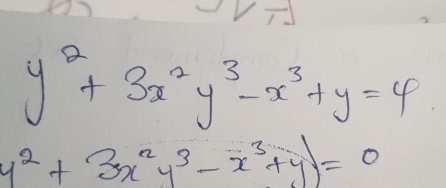 y² + 3x²y³ - x³ + y = 4
y² + 3x²y³ - x³ + y) = 0